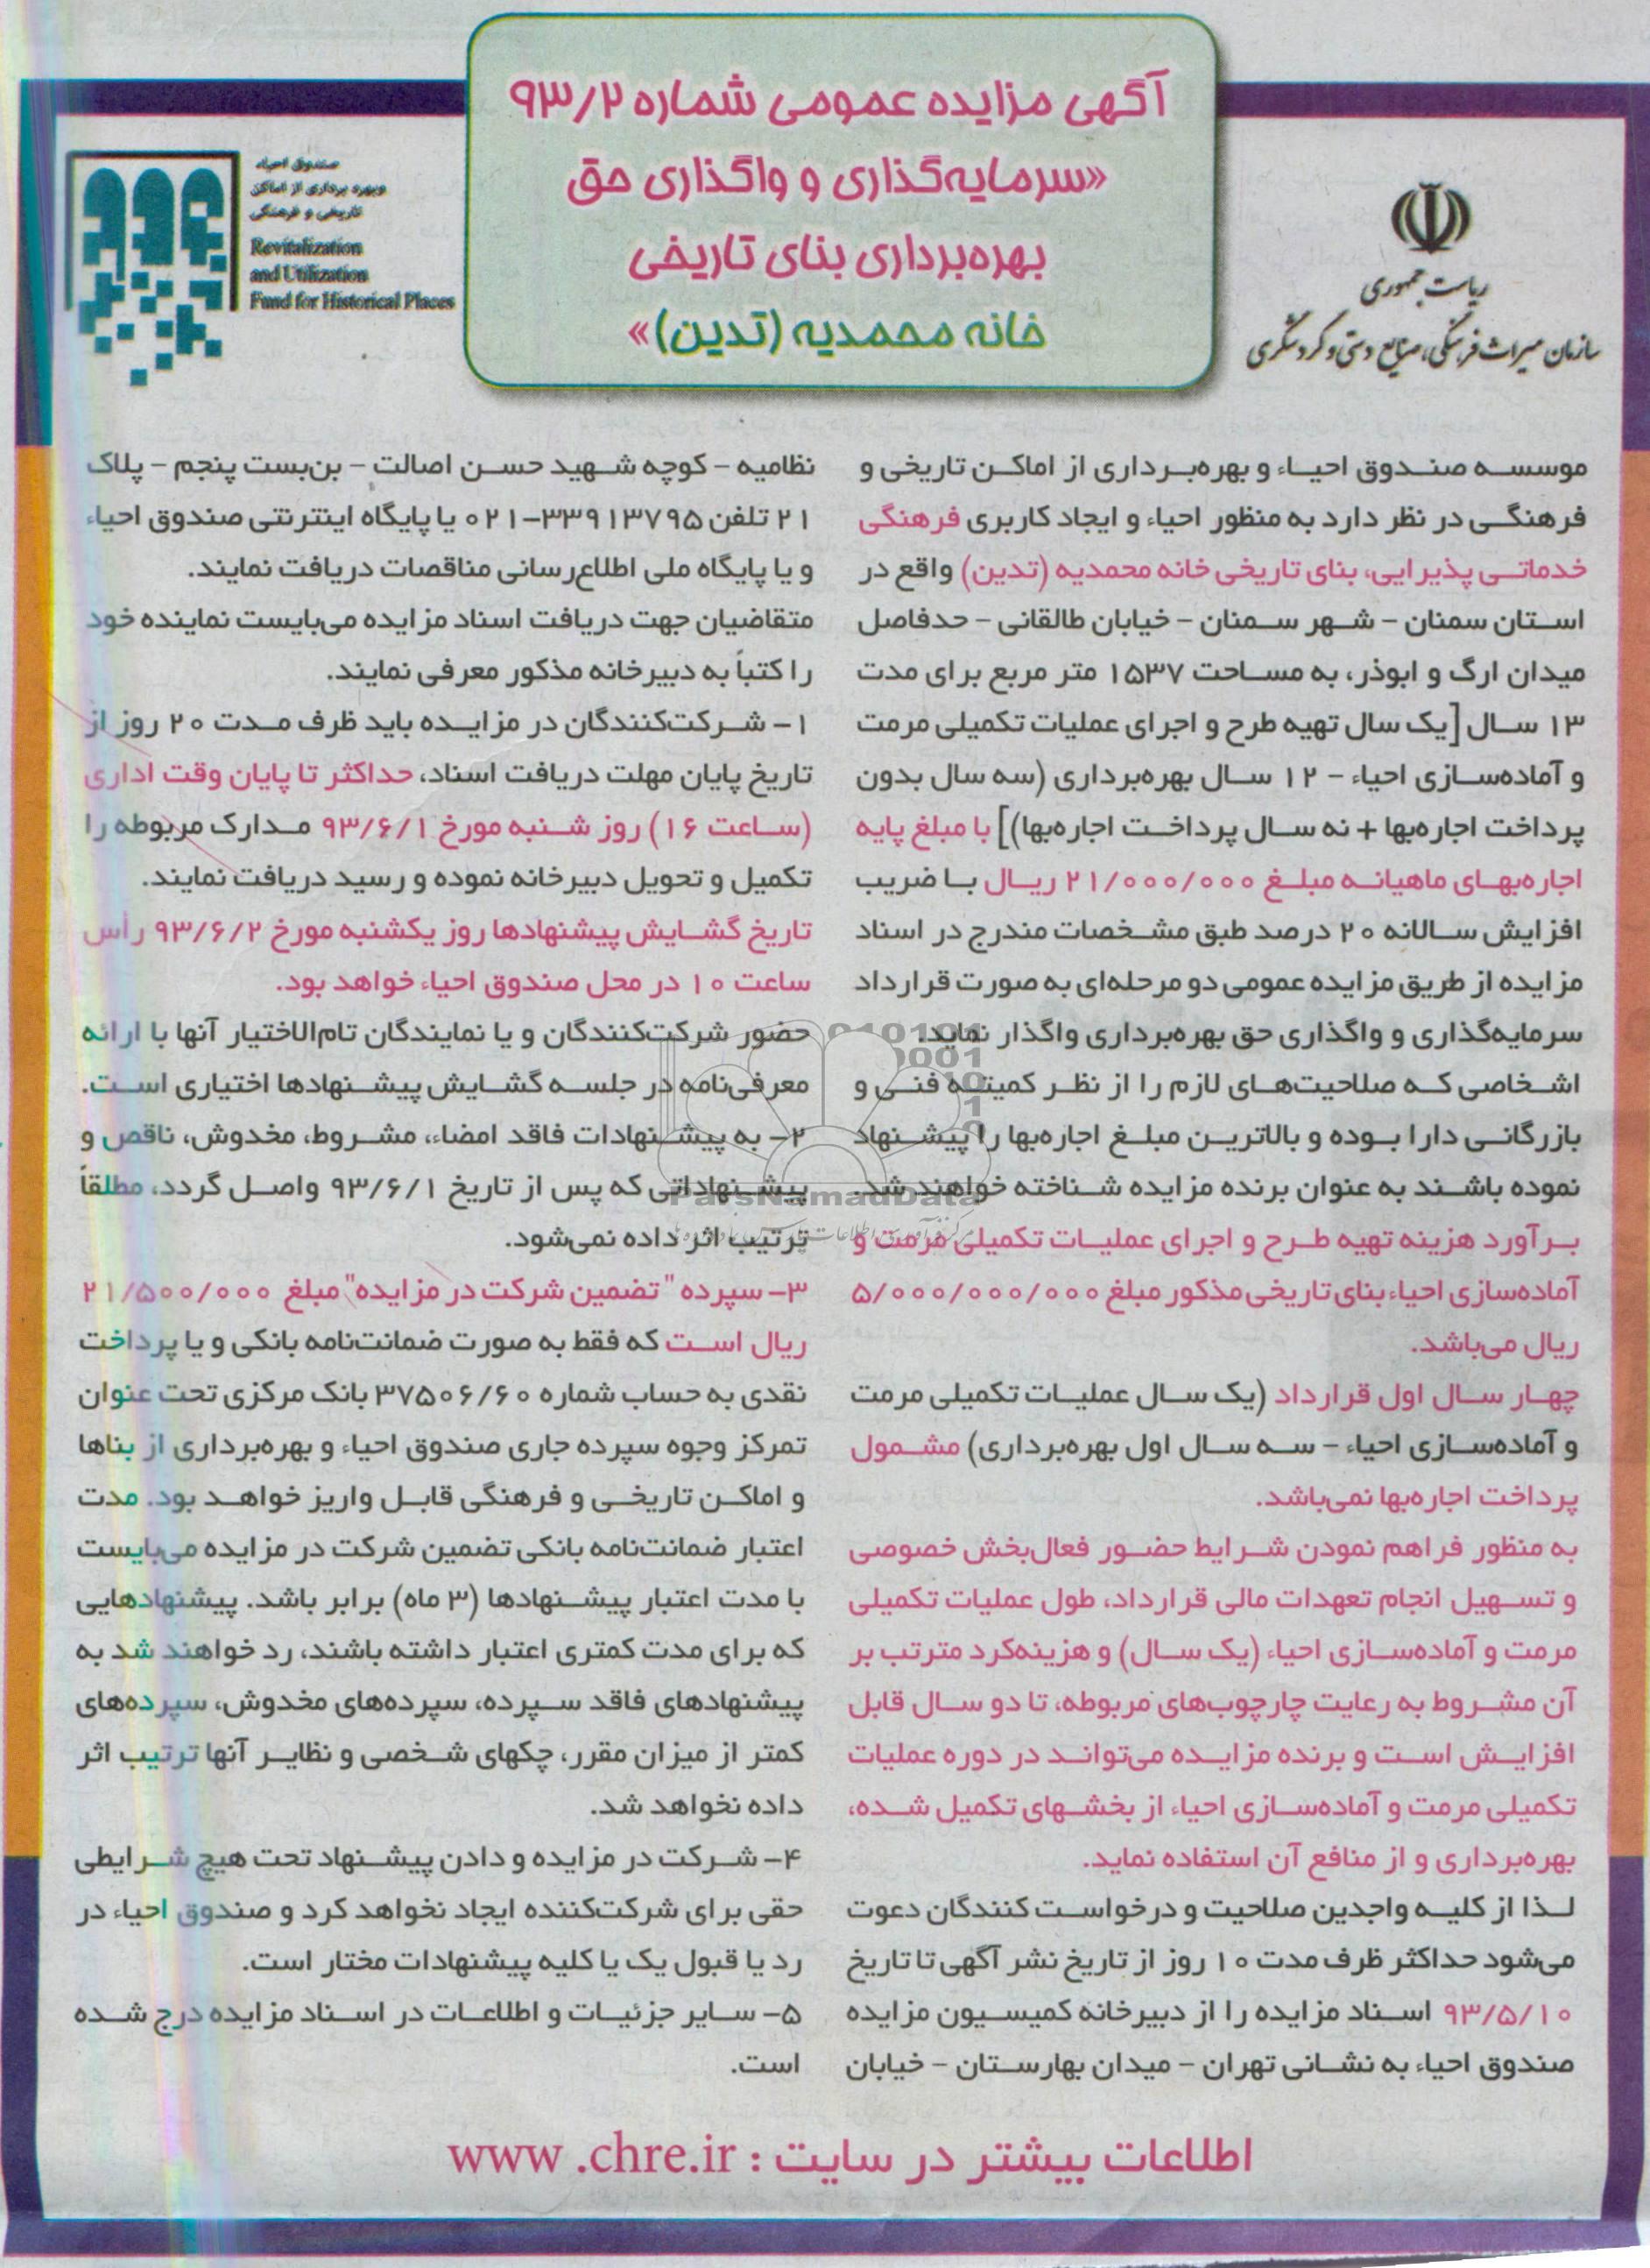 آگهی مزایده عمومی شماره ۹۳/۲
«سرمایه‌گذاری و واگذاری حق
بهره‌برداری بنای تاریخی
خانه محمدیه (تدین)»
ریاست جمهوری
سازمان میراث فرهنگی، صنایع دستی و گردشگری
صندوق احیاء
وبهره برداری از اماکن
تاریخی و فرهنگی
Revitalization
and Utilization
Fund for Historical Places
موسسه صندوق احیاء و بهره‌برداری از اماکن تاریخی و
فرهنگی در نظر دارد به منظور احیاء و ایجاد کاربری فرهنگی
خدماتی پذیرایی، بنای تاریخی خانه محمدیه (تدین) واقع در
استان سمنان - شهر سمنان - خیابان طالقانی - حدفاصل
میدان ارگ و ابوذر، به مساحت ۱۵۳۷ متر مربع برای مدت
۱۳ سال [یک سال تهیه طرح و اجرای عملیات تکمیلی مرمت
و آماده‌سازی احیاء - ۱۲ سال بهره‌برداری (سه سال بدون
پرداخت اجاره‌بها + نه سال پرداخت اجاره‌بها)] با مبلغ پایه
اجاره‌بهای ماهیانه مبلغ ۲۱/۰۰۰/۰۰۰ ریال با ضریب
افزایش سالانه ۲۰ درصد طبق مشخصات مندرج در اسناد
مزایده از طریق مزایده عمومی دو مرحله‌ای به صورت قرارداد
سرمایه‌گذاری و واگذاری حق بهره‌برداری واگذار نماید.
اشخاصی که صلاحیت‌های لازم را از نظر کمیته فنی و
بازرگانی دارا بوده و بالاترین مبلغ اجاره‌بها را پیشنهاد
نموده باشند به عنوان برنده مزایده شناخته خواهند شد.
برآورد هزینه تهیه طرح و اجرای عملیات تکمیلی مرمت و
آماده‌سازی احیاء بنای تاریخی مذکور مبلغ ۵/۰۰۰/۰۰۰/۰۰۰
ریال می‌باشد.
چهار سال اول قرارداد (یک سال عملیات تکمیلی مرمت
و آماده‌سازی احیاء - سه سال اول بهره‌برداری) مشمول
پرداخت اجاره‌بها نمی‌باشد.
به منظور فراهم نمودن شرایط حضور فعال‌بخش خصوصی
و تسهیل انجام تعهدات مالی قرارداد، طول عملیات تکمیلی
مرمت و آماده‌سازی احیاء (یک سال) و هزینه‌کرد مترتب بر
آن مشروط به رعایت چارچوب‌های مربوطه، تا دو سال قابل
افزایش است و برنده مزایده می‌تواند در دوره عملیات
تکمیلی مرمت و آماده‌سازی احیاء از بخشهای تکمیل شده،
بهره‌برداری و از منافع آن استفاده نماید.
لذا از کلیه واجدین صلاحیت و درخواست کنندگان دعوت
می‌شود حداکثر ظرف مدت ۱۰ روز از تاریخ نشر آگهی تا تاریخ
۹۳/۵/۱۰ اسناد مزایده را از دبیرخانه کمیسیون مزایده
صندوق احیاء به نشانی تهران - میدان بهارستان - خیابان
نظامیه - کوچه شهید حسن اصالت - بن‌بست پنجم - پلاک
۲۱ تلفن ۳۳۹۱۳۷۹۵-۰۲۱ یا پایگاه اینترنتی صندوق احیاء
و یا پایگاه ملی اطلاع‌رسانی مناقصات دریافت نمایند.
متقاضیان جهت دریافت اسناد مزایده می‌بایست نماینده خود
را کتباً به دبیرخانه مذکور معرفی نمایند.
۱- شرکت‌کنندگان در مزایده باید ظرف مدت ۲۰ روز از
تاریخ پایان مهلت دریافت اسناد، حداکثر تا پایان وقت اداری
(ساعت ۱۶) روز شنبه مورخ ۹۳/۶/۱ مدارک مربوطه را
تکمیل و تحویل دبیرخانه نموده و رسید دریافت نمایند.
تاریخ گشایش پیشنهادها روز یکشنبه مورخ ۹۳/۶/۲ رأس
ساعت ۱۰ در محل صندوق احیاء خواهد بود.
حضور شرکت‌کنندگان و یا نمایندگان تام‌الاختیار آنها با ارائه
معرفی‌نامه در جلسه گشایش پیشنهادها اختیاری است.
۲- به پیشنهادات فاقد امضاء، مشروط، مخدوش، ناقص و
پیشنهاداتی که پس از تاریخ ۹۳/۶/۱ واصل گردد، مطلقاً
ترتیب اثر داده نمی‌شود.
۳- سپرده "تضمین شرکت در مزایده" مبلغ ۲۱/۵۰۰/۰۰۰
ریال است که فقط به صورت ضمانت‌نامه بانکی و یا پرداخت
نقدی به حساب شماره ۳۷۵۰۶/۶۰ بانک مرکزی تحت عنوان
تمرکز وجوه سپرده جاری صندوق احیاء و بهره‌برداری از بناها
و اماکن تاریخی و فرهنگی قابل واریز خواهد بود. مدت
اعتبار ضمانت‌نامه بانکی تضمین شرکت در مزایده می‌بایست
با مدت اعتبار پیشنهادها (۳ ماه) برابر باشد. پیشنهادهایی
که برای مدت کمتری اعتبار داشته باشند، رد خواهند شد به
پیشنهادهای فاقد سپرده، سپرده‌های مخدوش، سپرده‌های
کمتر از میزان مقرر، چکهای شخصی و نظایر آنها ترتیب اثر
داده نخواهد شد.
۴- شرکت در مزایده و دادن پیشنهاد تحت هیچ شرایطی
حقی برای شرکت‌کننده ایجاد نخواهد کرد و صندوق احیاء در
رد یا قبول یک یا کلیه پیشنهادات مختار است.
۵- سایر جزئیات و اطلاعات در اسناد مزایده درج شده
است.
ParsNamadData
اطلاعات بیشتر در سایت : www .chre.ir